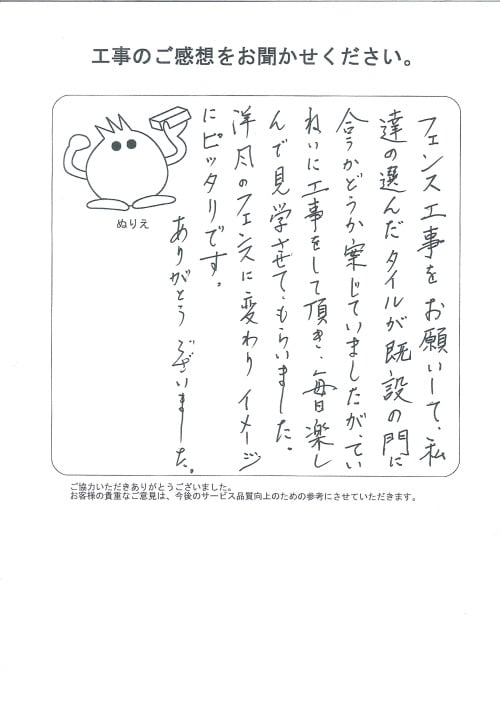 工事のご感想をお聞かせください。
フェンス工事をお願いして、私
達の選んだタイルが既設の門に
合うかどうか案じていましたが、てい
ねいに工事をして頂き、毎日楽し
んで見学させてもらいました。
洋風のフェンスに変わり イメージ
にピッタリです。
ありがとうございました。
ぬりえ
ご協力いただきありがとうございました。
お客様の貴重なご意見は、今後のサービス品質向上のための参考にさせていただきます。